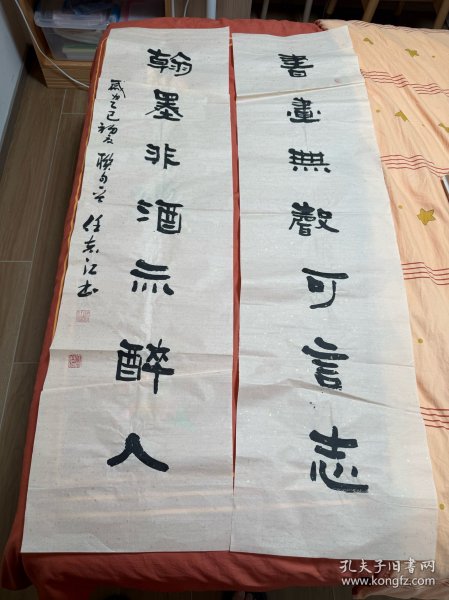 書畫無聲可言志
翰墨非酒亦醉人
聯句 任志江书
孔夫子旧书网
www.kongfz.com